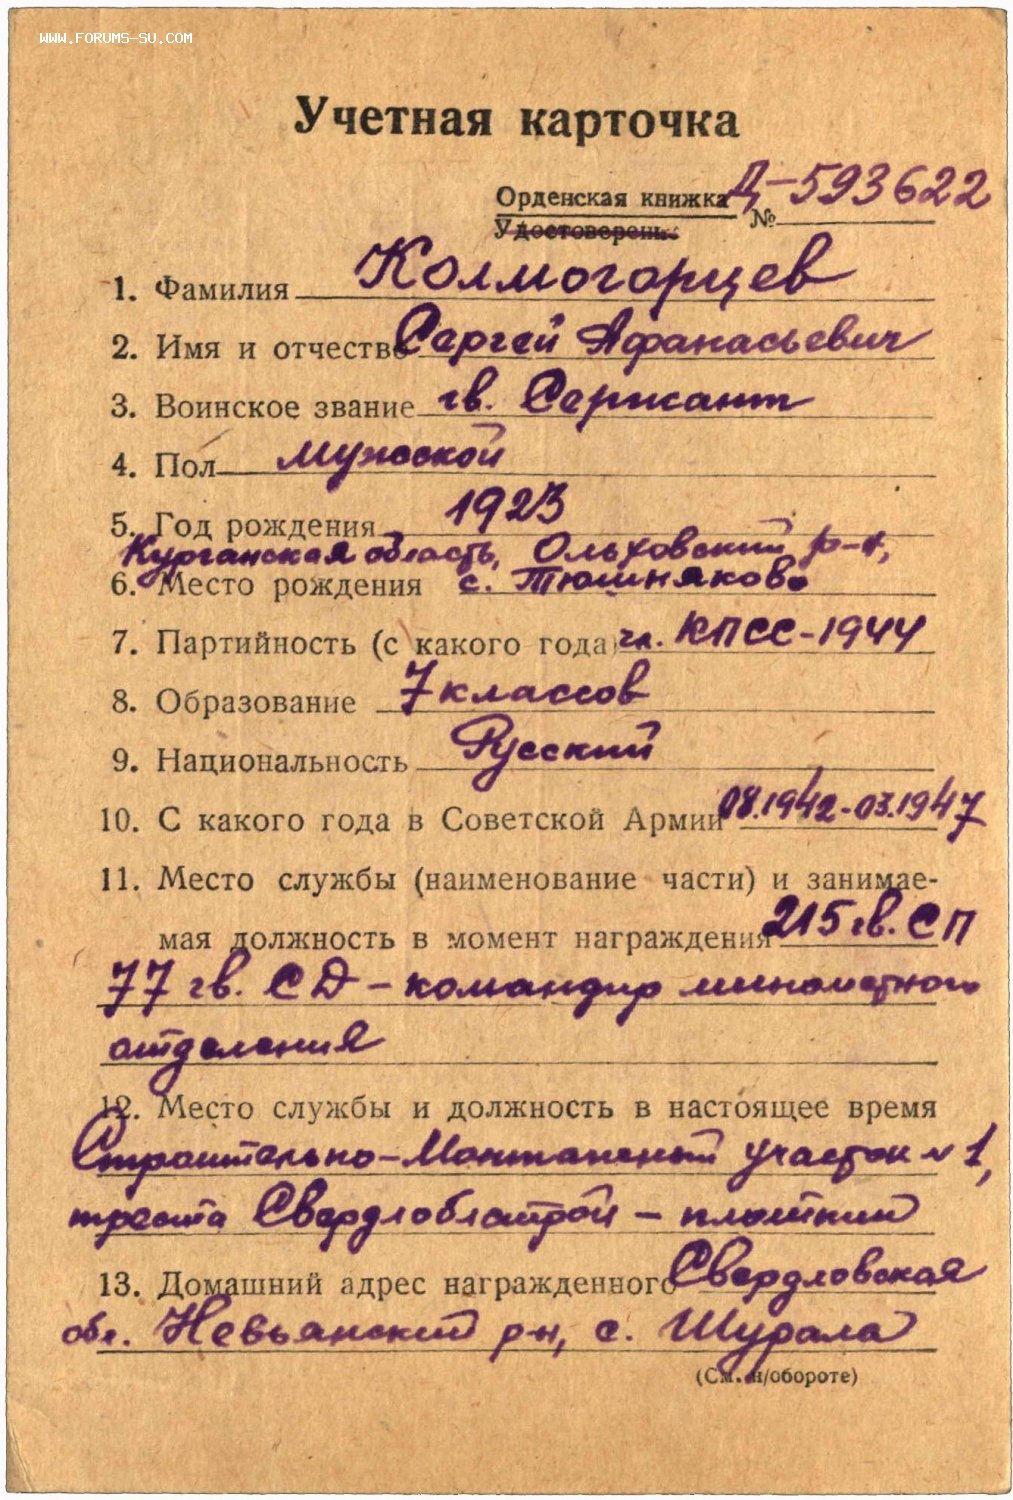 WWW.FORUMS-SU.COM
Учетная карточка
Орденская книжка Д-593622
Удостоверень №
1. Фамилия Колмогорцев
2. Имя и отчество Сергей Афанасьевич
3. Воинское звание гв. Сержант
4. Пол мужской
5. Год рождения 1923
Курганская область, Ольховский р-н,
6. Место рождения с. Тюшняково
7. Партийность (с какого года) чл. КПСС-1944
8. Образование 7 классов
9. Национальность Русский
10. С какого года в Советской Армии 08.1942-03.1947
11. Место службы (наименование части) и занимае-
мая должность в момент награждения 215 гв. СП
77 гв. СД - командир минометного
отделения
12. Место службы и должность в настоящее время
Строительно-Монтажный участок №1,
треста Свердлоблстрой - плотник
13. Домашний адрес награжденного Свердловская
обл. Невьянский р-н, с. Шурала
(См. н/обороте)